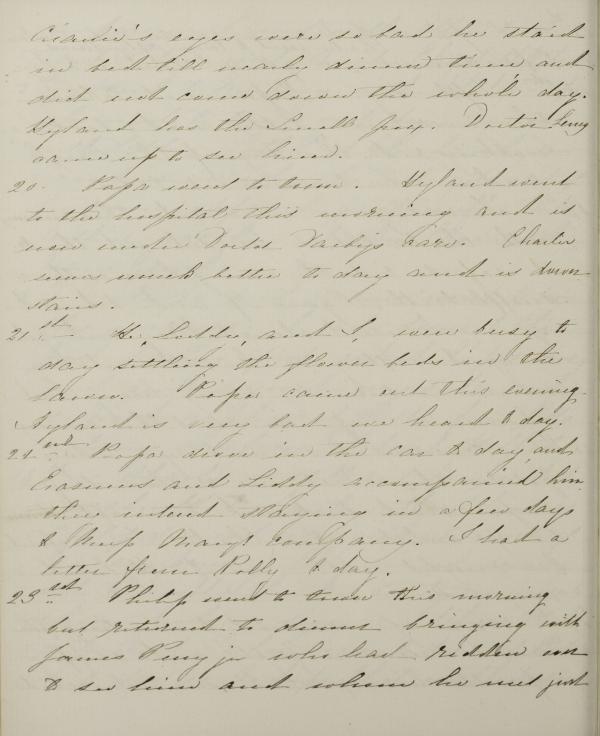 Charlie's eyes were so bad he staid
in bed till nearly dinner time and
did not come down the whole day.
Hyland has the Small pox. Doctor
came up to see him.
20. Papa went to town. Hyland went
to the hospital this morning and is
now under Doctor Darby's care. Charlie
seems much better to day and is down
stairs.
21st He, Liddy, and I, were busy to
day settling the flower beds in the
lawn. Papa came out this evening.
Hyland is very bad we heard to day.
22nd Papa drove in the car to day, and
Erasmus and Liddy accompanied him
they intend staying in a few days
to keep Mary company. I had a
letter from Polly to day.
23rd Philip went to town this morning
but returned to dinner bringing with
James Penny jr who had ridden out
to see him and whom he met just